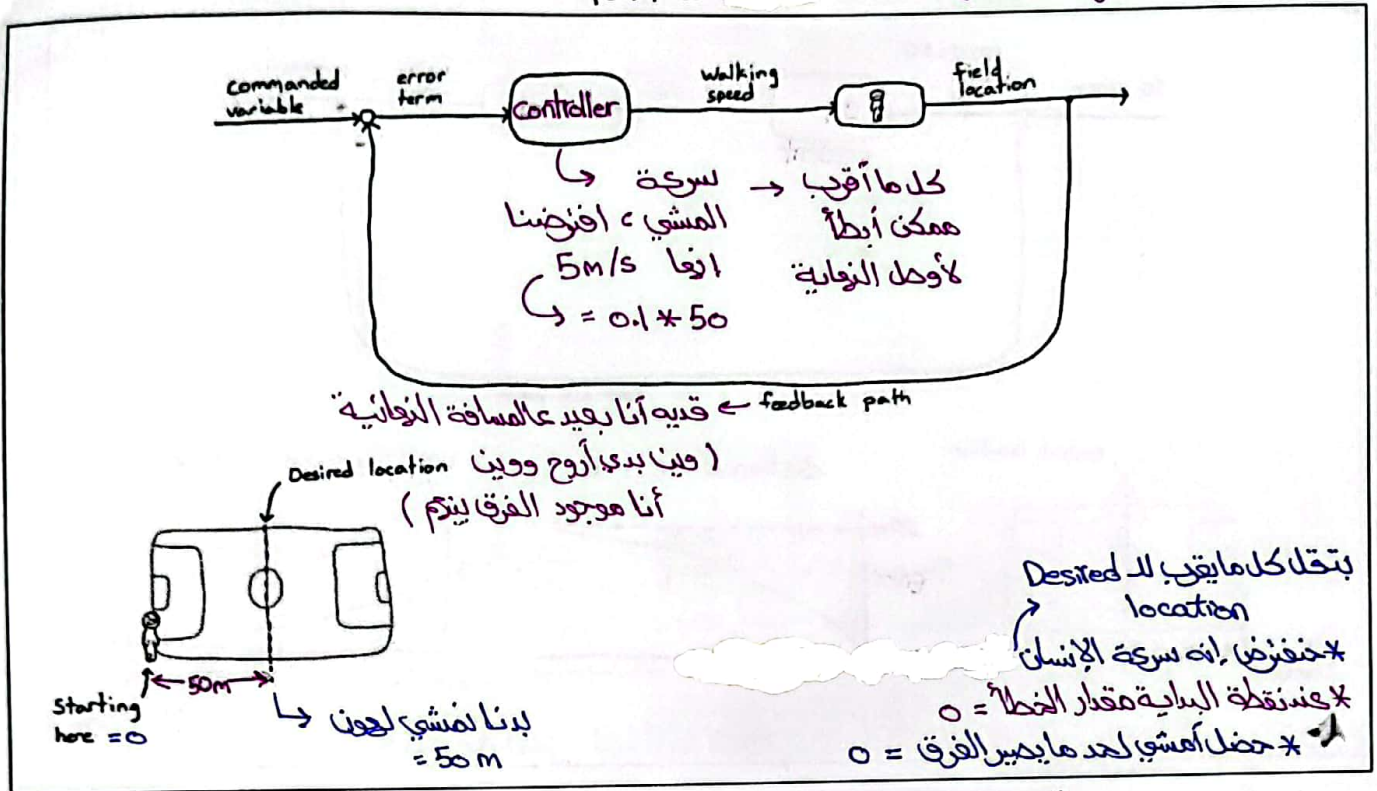 commanded
variable
error
term
controller
walking
speed
field
location
سرعة
المشي ، افترضنا
انها 5m/s
= 0.1 * 50
كل ما أقرب
ممكن أبطأ
لأوصل النهاية
feedback path
قديه أنا بعيد عالمسافة النهائية
(فين بدي أروح ووين
أنا موجود الفرق بينهم)
Desired location
50m
Starting
here = 0
بدنا نمشي لهون
= 50 m
بتقل كل ما يقرب لل Desired
location
* حنفترض إنه سرعة الإنسان
* عند نقطة البداية مقدار الخطأ = 0
* حضل أمشي لحد ما يصير الفرق = 0